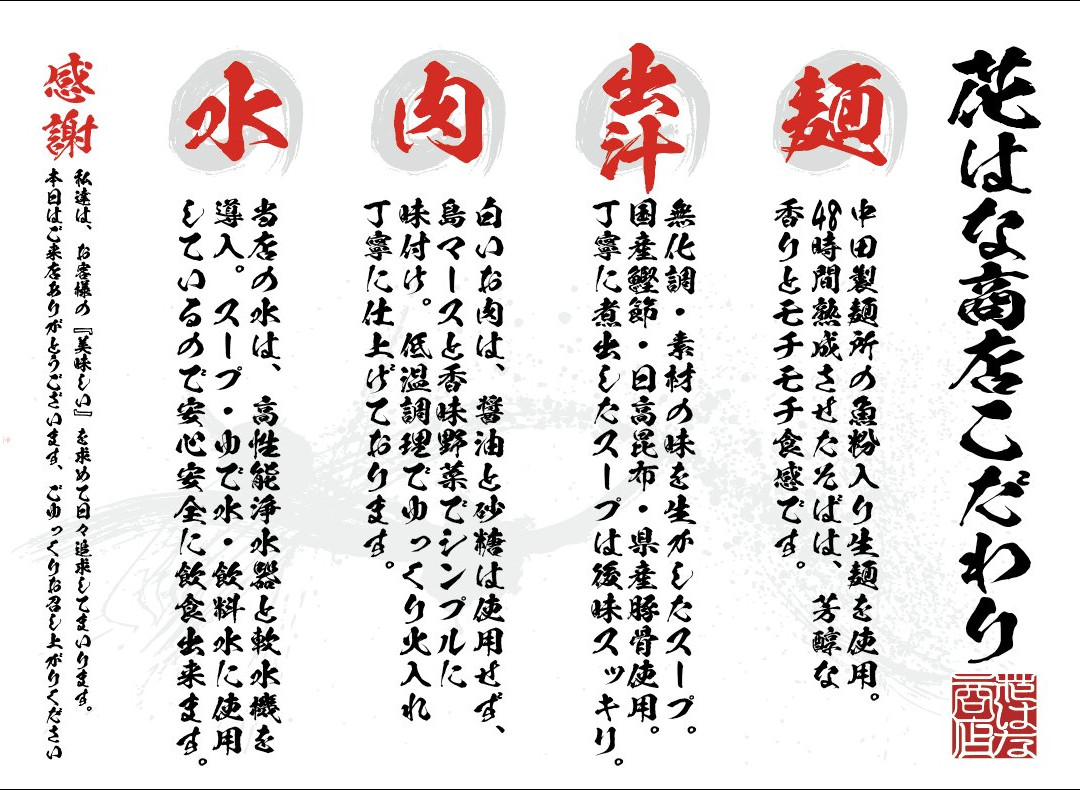 花はな商店こだわり
花はな
商店
麺
中田製麺所の魚粉入り生麺を使用。
48時間熟成させたそばは、芳醇な
香りとモチモチ食感です。
出汁
無化調・素材の味を生かしたスープ。
国産鰹節・日高昆布・県産豚骨使用。
丁寧に煮出したスープは後味スッキリ。
肉
白いお肉は、醤油と砂糖は使用せず、
島マースと香味野菜でシンプルに
味付け。低温調理でゆっくり火入れ
丁寧に仕上げております。
水
当店の水は、高性能浄水器と軟水機を
導入。スープ・ゆで水・飲料水に使用
しているので安心安全に飲食出来ます。
感謝
私達は、お客様の『美味しい』を求めて日々追求してまいります。
本日はご来店ありがとうございます、ごゆっくりお召し上がりください